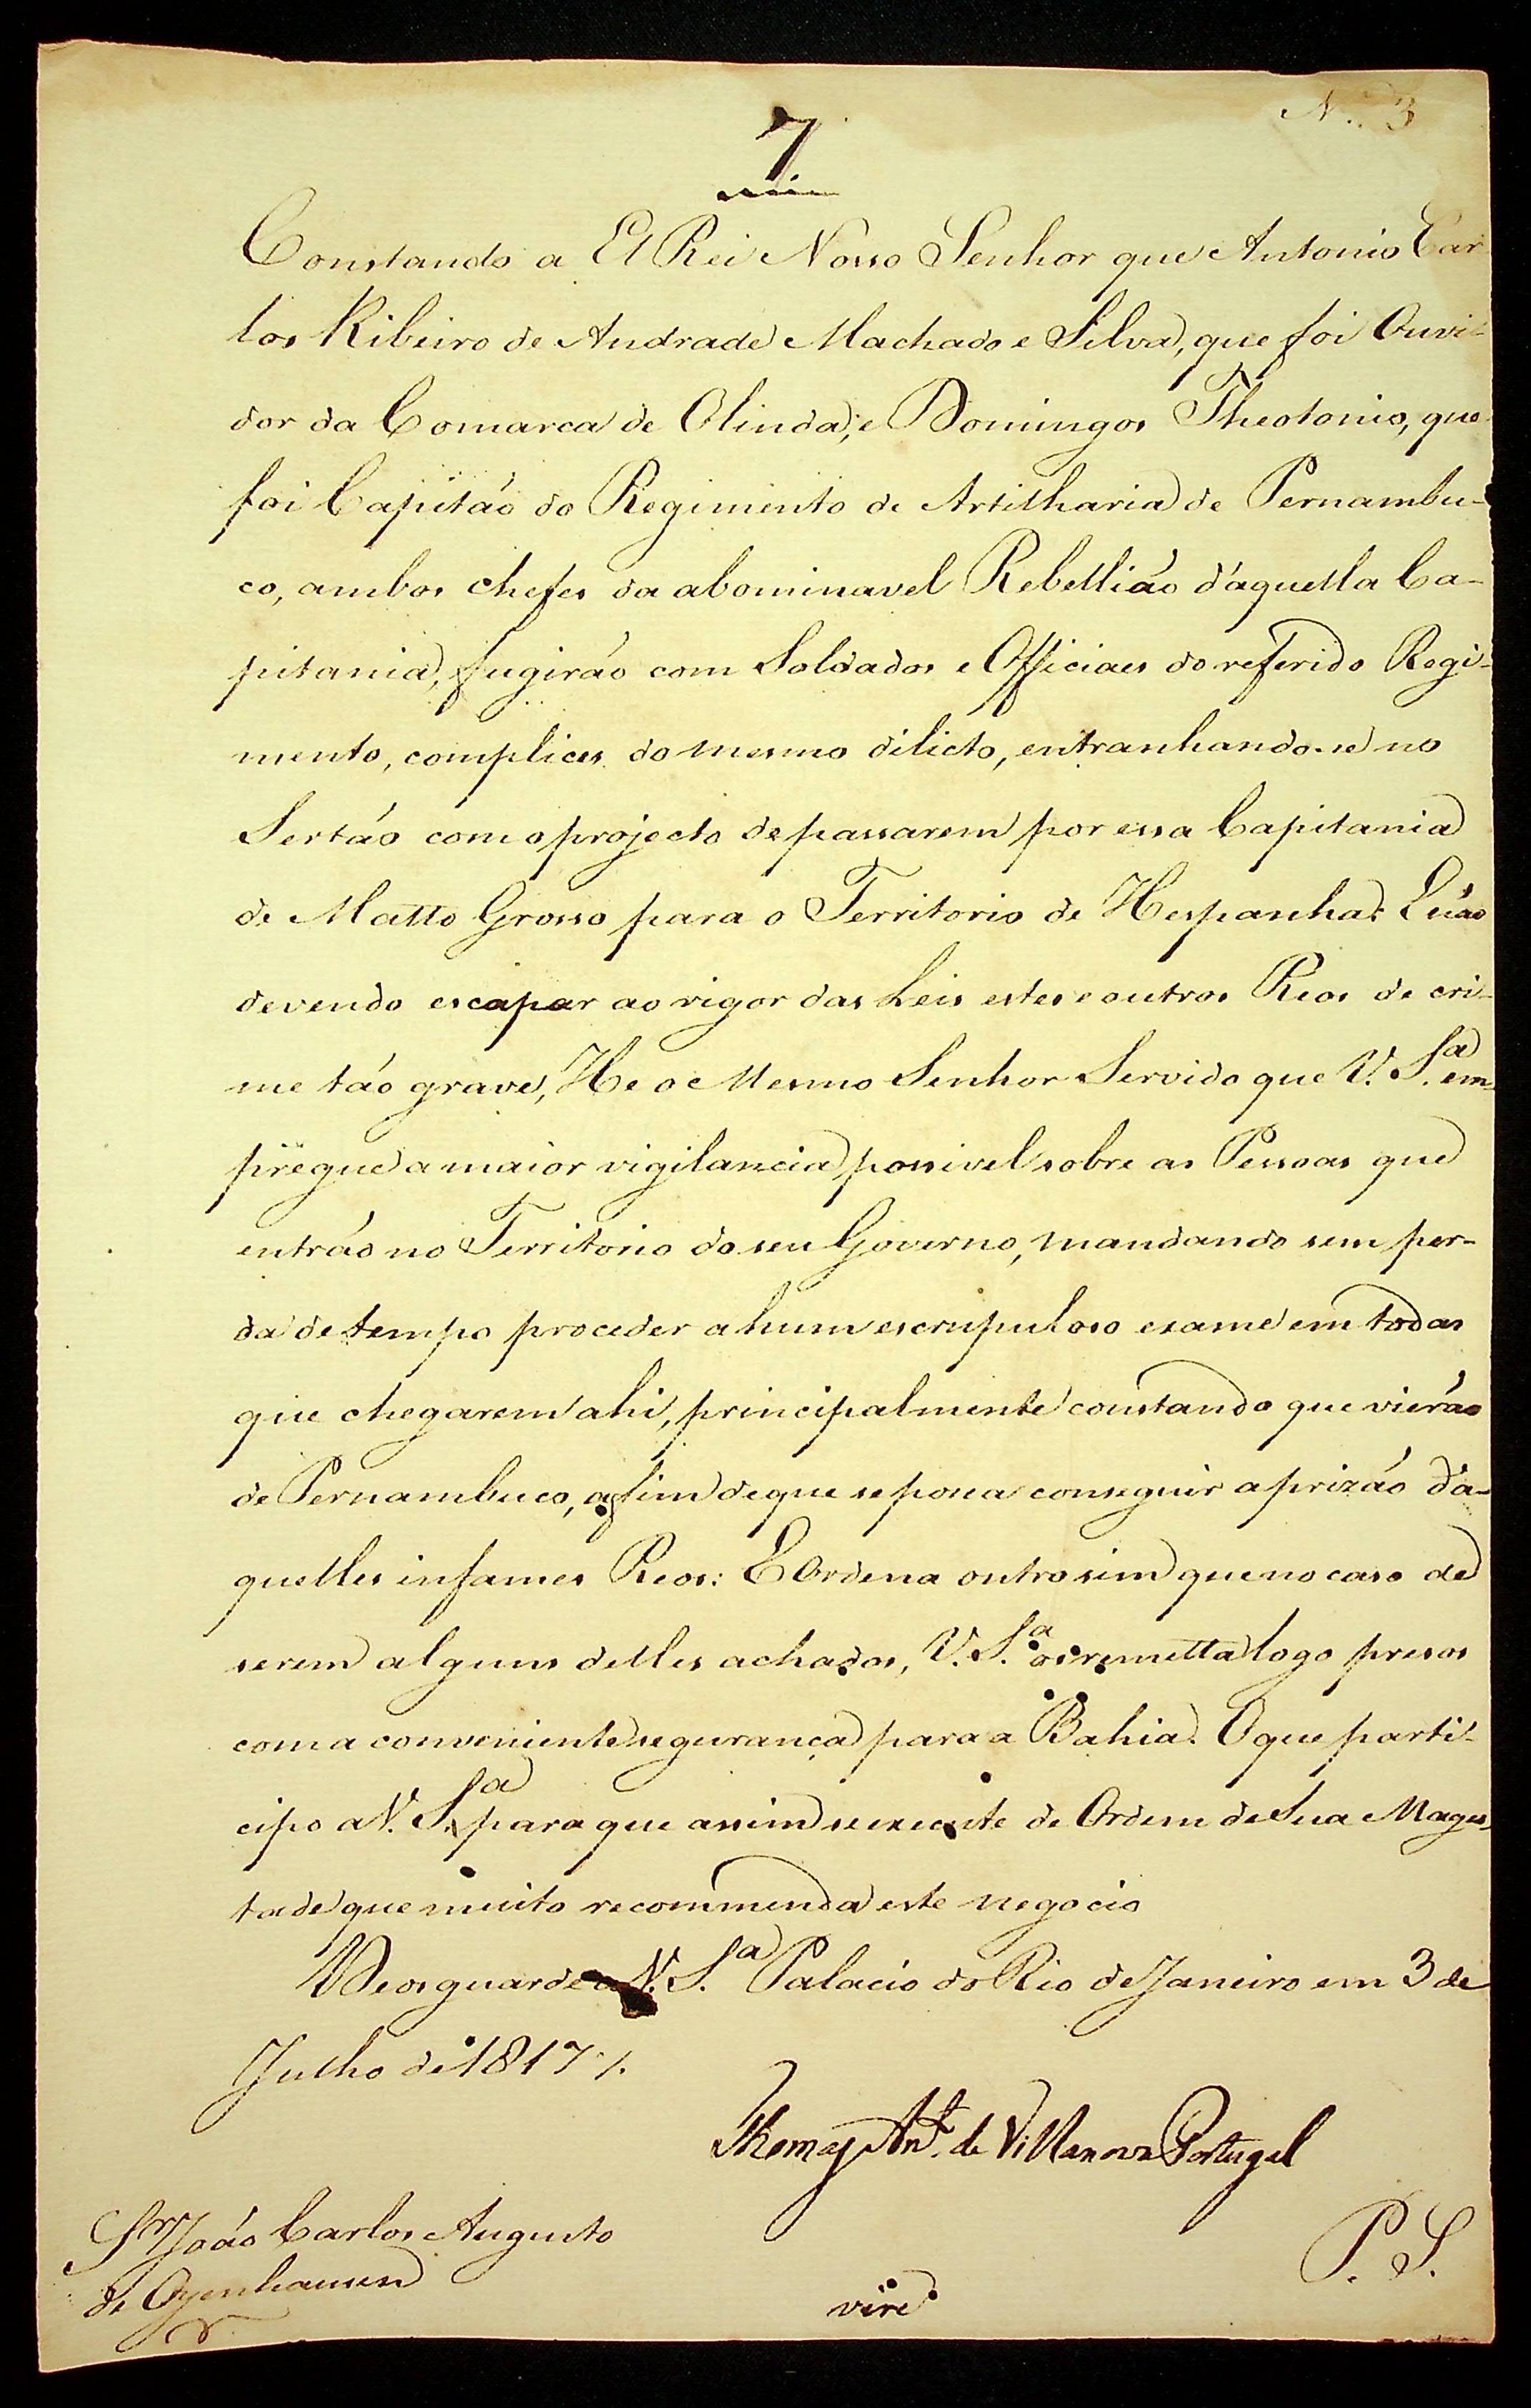 N.º 3
7
Constando a El Rei Nosso Senhor que Antonio Car-
los Ribeiro de Andrade Machado e Silva, que foi Ouvi-
dor da Comarca de Olinda, e Domingos Theotonio, que
foi Capitaõ do Regimento de Artilharia de Pernambu-
co, ambos chefes da abominavel Rebelliaõ d'aquella Ca-
pitania, fugiraõ com Soldados e Officiaes do referido Regi-
mento, complices do mesmo dilicto, entranhando-se no
Sertaõ com o projecto de passarem por essa Capitania
de Matto Grosso para o Territorio de Hespanha: E naõ
devendo escapar ao rigor das Leis estes e outros Reos de cri-
me taõ grave, He o Mesmo Senhor Servido que V. S.ª em-
pregue a maior vigilancia possivel sobre as Pessoas que
entraõ no Territorio do seu Governo, mandando sem per-
da de tempo proceder a hum escrupuloso exame em todas
que chegarem ahi, principalmente constando que vieraõ
de Pernambuco, a fim de que se possa conseguir a prizaõ d'a-
quelles infames Reos: E Ordena outro sim que no caso de
serem alguns delles achados, V. S.ª os remetta logo presos
com a conveniente segurança para a Bahia. O que parti-
cipo a V. S.ª para que assim se execute de Ordem de Sua Mages-
tade que muito recommenda este negocio
Deos guarde a V. S.ª Palacio do Rio de Janeiro em 3 de
Julho de 1817 /.
Thomaz Ant.º de Villanova Portugal
Snr João Carlos Augusto
de Oyenhausen
P. S.
vire